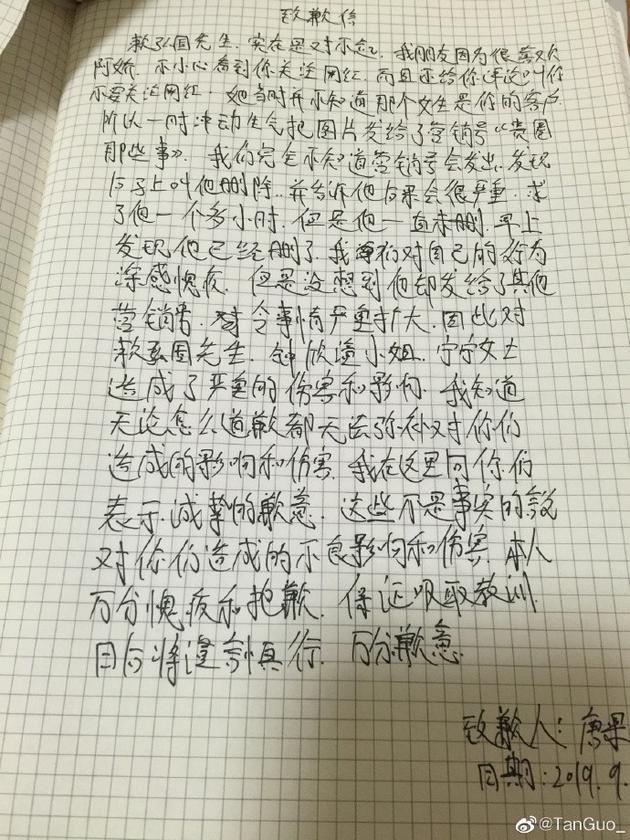 致歉信
赖弘国先生.实在是对不起.我朋友因为很喜欢
阿娇.不小心看到你关注网红.而且还给你评论叫你
不要关注网红.她当时并不知道那个女生是你的客户.
所以一时冲动生气把图片发给了营销号“贵圈
那些事》.我们完全不知道营销号会发出.发现
后马上叫他删除.并告诉他后果会很严重.求
了他一个多小时.但是他一直未删.早上
发现他已经删了.我们对自己的行为
深感愧疚.但是没想到他却发给了其他
营销号.令事情严重扩大.因此对
赖弘国先生.钟欣潼小姐.宁宁女士
造成了严重的伤害和影响.我知道
无论怎么道歉都无法弥补对你们
造成的影响和伤害.我在这里向你们
表示.诚挚的歉意.这些不是事实的言
对你们造成的不良影响和伤害.本人
万分愧疚和抱歉.保证吸取教训.
日后将谨言慎行.万分歉意.
致歉人:唐果
日期:2019.9.
@TanGuo_